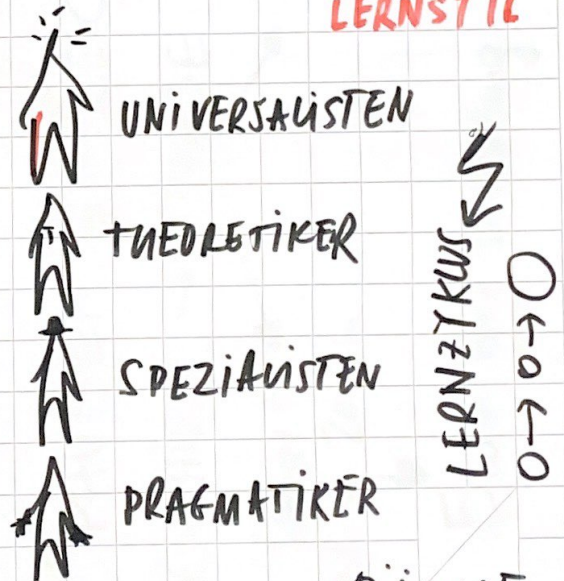 LERNSTIL
UNIVERSALISTEN
THEORETIKER
SPEZIALISTEN
PRAGMATIKER
LERNZYKLUS